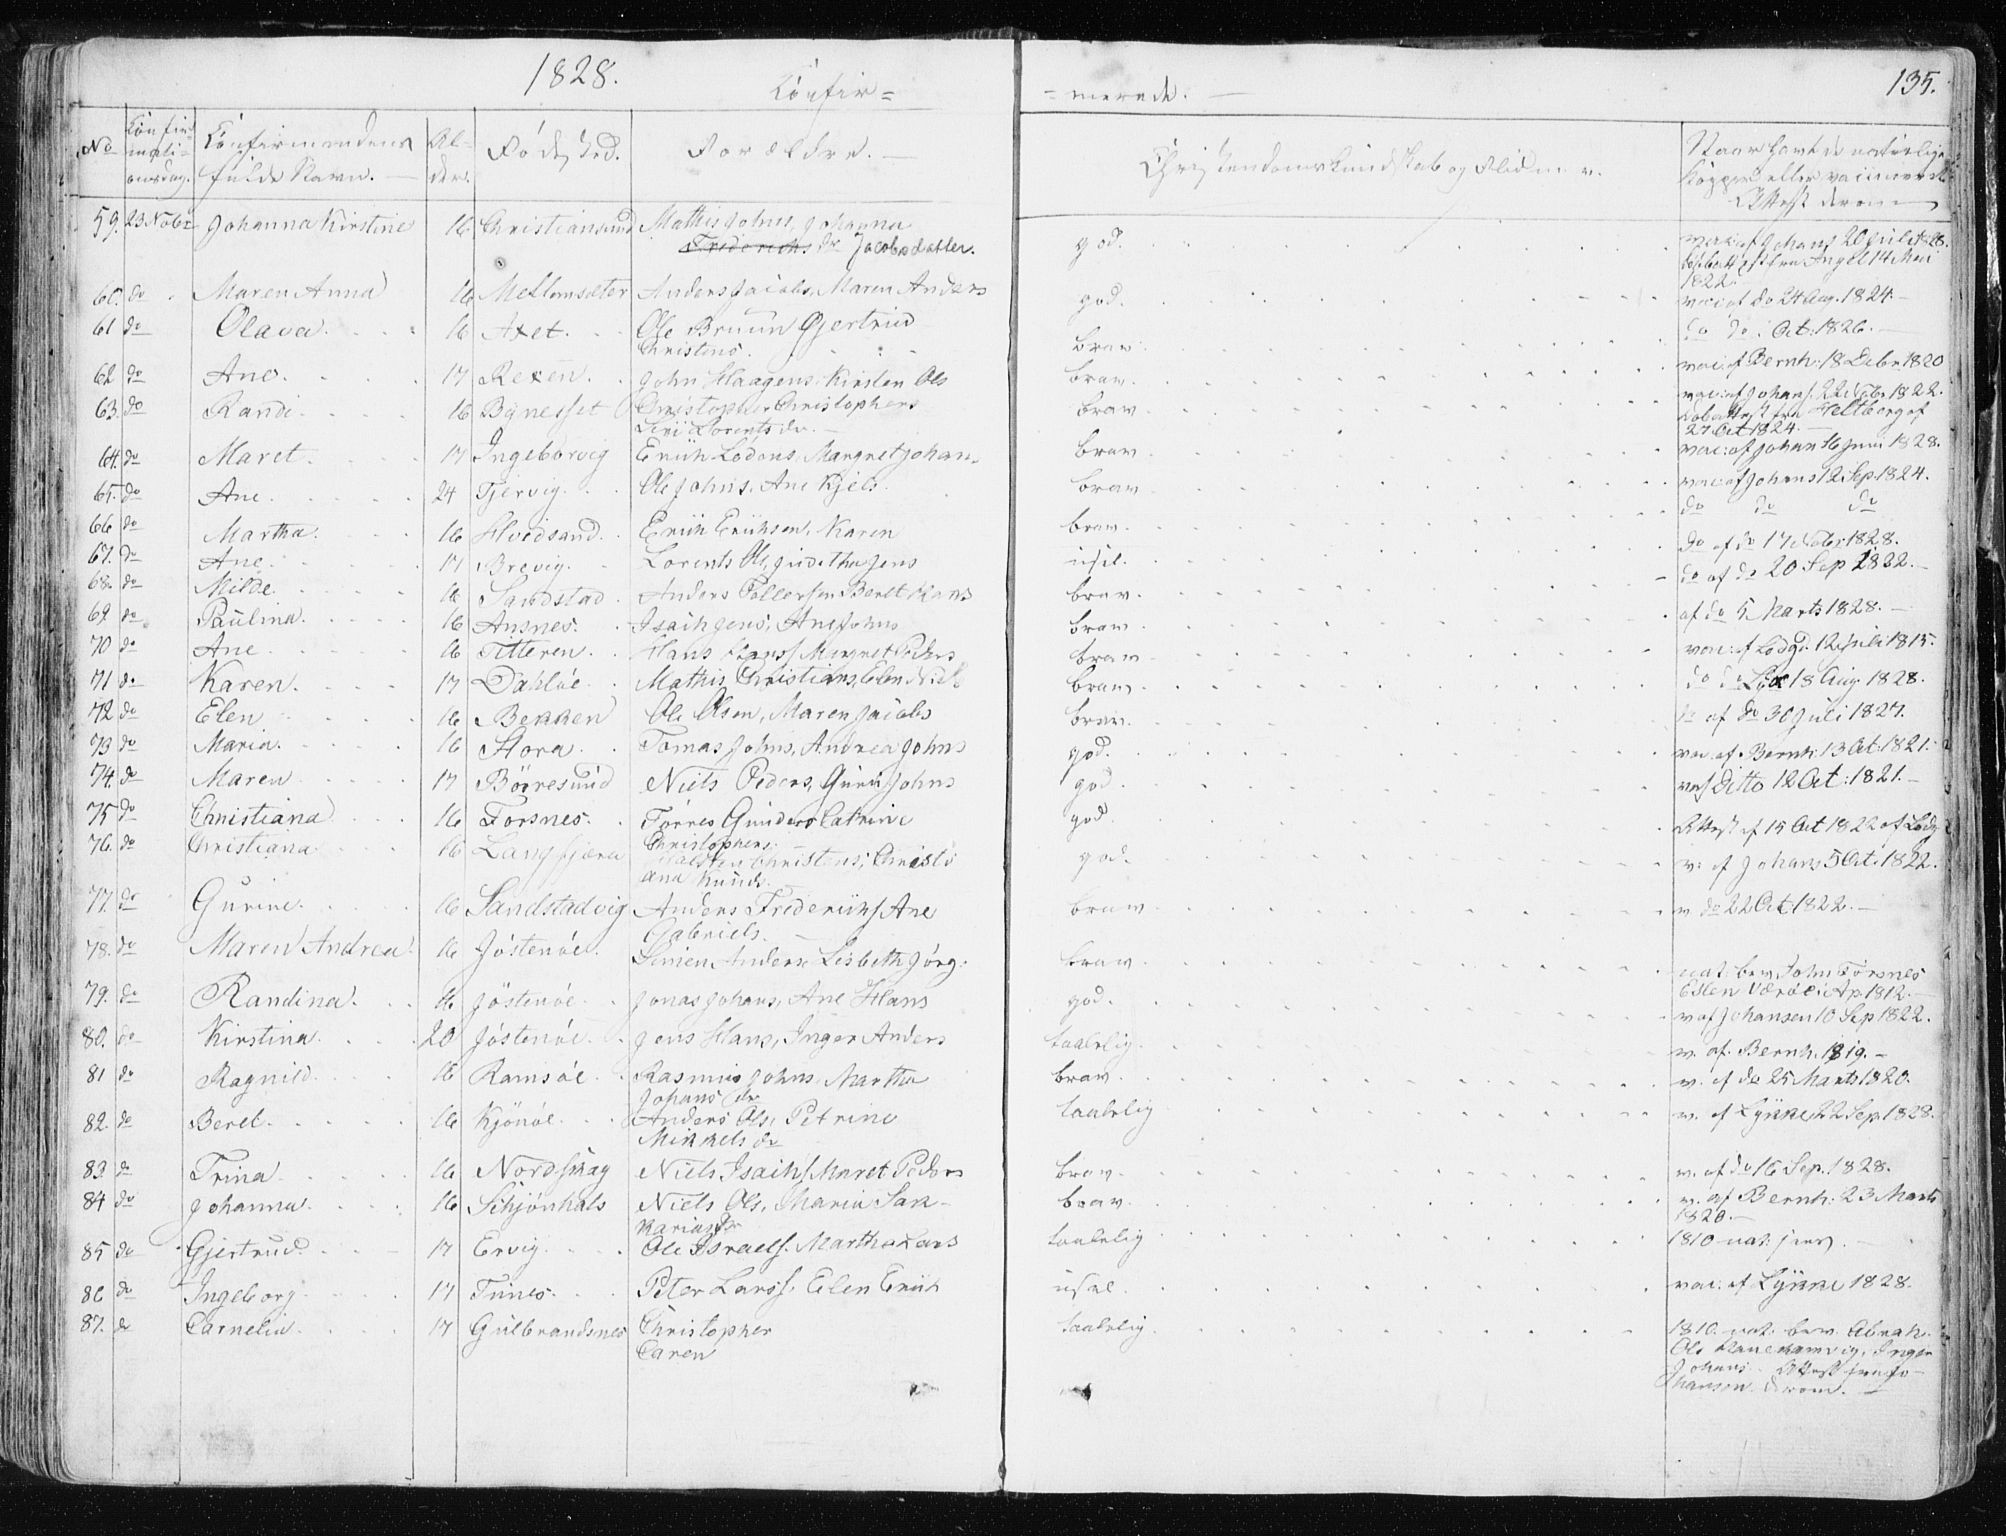 1828. Confir= =merede. 135.
No Confirmationsdag. Confirmandens fulde Navn. Alder. Födested. Forældre. Christendomskundskab og Flid m. v. Naar havt de naturlige Kopper eller vaccineret Attest derom
59. 23 Nobr Johanna Kirstine 16 Christiansund Mathis Johns, Johanna god. vac: af Johans 20 Juli 1828.
Frederichs dr Jacobsdatter. 14 Mai
1822.
60. do Maren Anna 16 Mellemsæter Anders Jacobs, Maren Anders god. vac: af do 24 Aug. 1824.
61 do Olava. 16 Axet. Ole Bruun Gjertrud brav. do do Oct: 1826.
Christens.
62 do Ane. 17 Rexen. John Haagens, Kirsten Ols brav. vac: af Bernh: 18 Debr. 1820
63. do Randi. 16 Bynesset Christopher Christophers brav vac: af Johans. 1822.
Lorents dr. Heltberg af
27 Oct 1824.
64. do Maret. 17 Ingeborvig Erich Lodens, Margret Johan. brav vac: af Johan 16 Juni 1828.
65. do Ane 24 Tjervig. Ole Johns. Ane Kjels brav vac: af Johans 12 Sep 1824.
66 do Martha. 16 Hvidsand. Erich Erichsen, Karen brav. do do do
67. do Ane. 17 Brevig. Lorents Ols, Jens usel. do af do 17 Nobr 1828.
68. do Milde. 16 Sandstad. Anders Pettersen Beret Hans brav. do af do 20 Sep 1822.
69. do Paulina. 16 Ansnes. Isaih Jens, Ane Johns brav af do 5 Marts 1828.
70 do Ane 16 Titteren. Hans Hans, Margret Peders brav vac: af Lodg. 12 Juli 1815.
71 do Karen. 17 Dahlöe. Mathis Christians, Elen Niels brav do do 18 Aug. 1828.
72 do Elen 16 Bekken Ole Olsen, Maren Jacobs brav. do af do 30 Juli 1827.
73 do Maria. 16 Flora. Tomas Johns, Andrea Johns god. vac. af Bernh: 13 Oct: 1821.
74. do Maren 17 Börresund Niels Peders, Guru Johns god. Ditto 12 Oct: 1821.
75 do Christiana 16 Forsnes. Torres Gunders Catrine god Attest af 15 Oct 1822 af Lodg
Christophers.
76. do Christiana 16 Langfjæra Christens; Christi god. v: af Johans 5 Oct: 1822.
ana Knuds.
77. do Gurine. 16 Sandstadvig Anders Frederichs, Ane brav v. do 22 Oct: 1822.
Gabriels.
78. do Maren Andrea 16 Jöstenöe. Simen Anders, Lisbeth Jörg. brav nat: bev. John Forsnes
Esten Værøe: Ap. 1812.
79. do Randina. 16 Jöstenöe. Jonas Johans, Ane Hans god. v af Johansen 10 Sep 1822.
80. do Kirstina. 20 Jöstenöe. Jens Hans, Inger Anders taalelig. v. af. Bernh. 1819.
81 do Ragnild. 16 Ramsöe. Rasmus Johns, Martha brav. v. af do 25 Marts 1820.
Johans dr
82. do Beret. 16 Kjönöe. Anders Ols, Petrine taalelig v. af Lykke 22 Sep. 1828.
Mikkels dr
83. do Trina 16 Nordskag Niels Isaihs Maret Peders brav. v. af do 16 Sep. 1828.
84 do Johanna 16 Schjönhals Niels Ols, Maria Sak= brav. v. af Bernh: 23 Marts
karias dr 1820.
85 do Gjertrud. 17 Ervig. Ole Israels. Martha Lars taalelig 1810 nat:
86 do Ingeborg 17 Finnes. Peter Larss. Elen Erich usel vac: af Lykke 1828.
87. do Carnelia. 17 Gulbrandsnes Christopher taalelig. 1810. nat: bev. Abrah.
Caren Ols Inger
Johans. Attest fra Jo=
hansen derom.